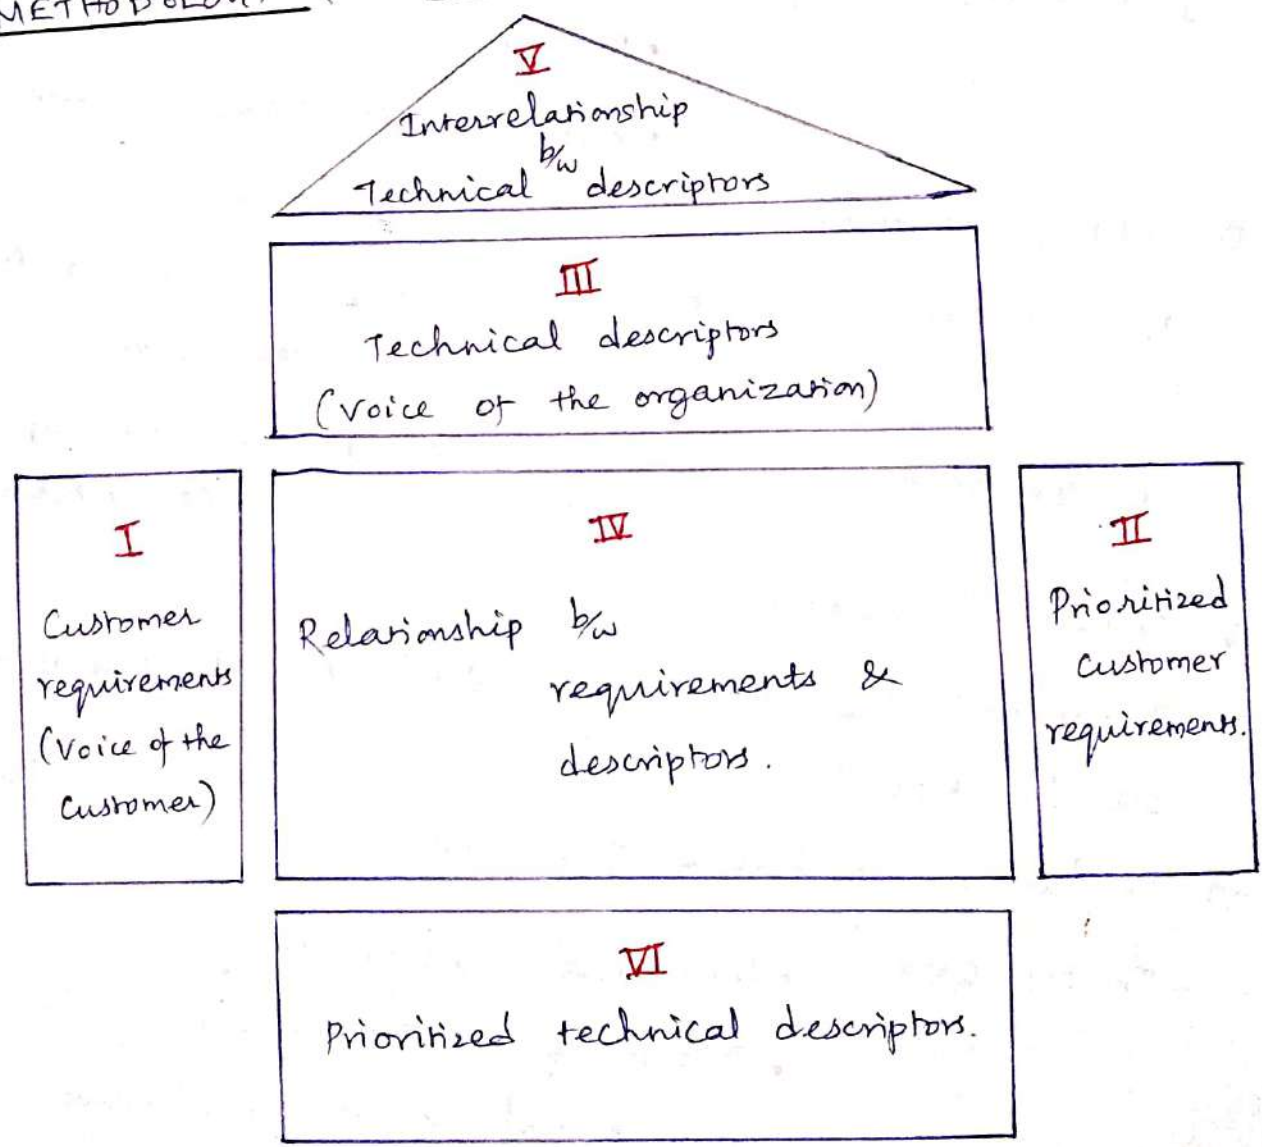 METHODOLOGY
V
Interrelationship
b/w
Technical descriptors
III
Technical descriptors
(Voice of the organization)
I
Customer
requirements
(Voice of the
Customer)
IV
Relationship b/w
requirements &
descriptors.
II
Prioritized
Customer
requirements.
VI
Prioritized technical descriptors.